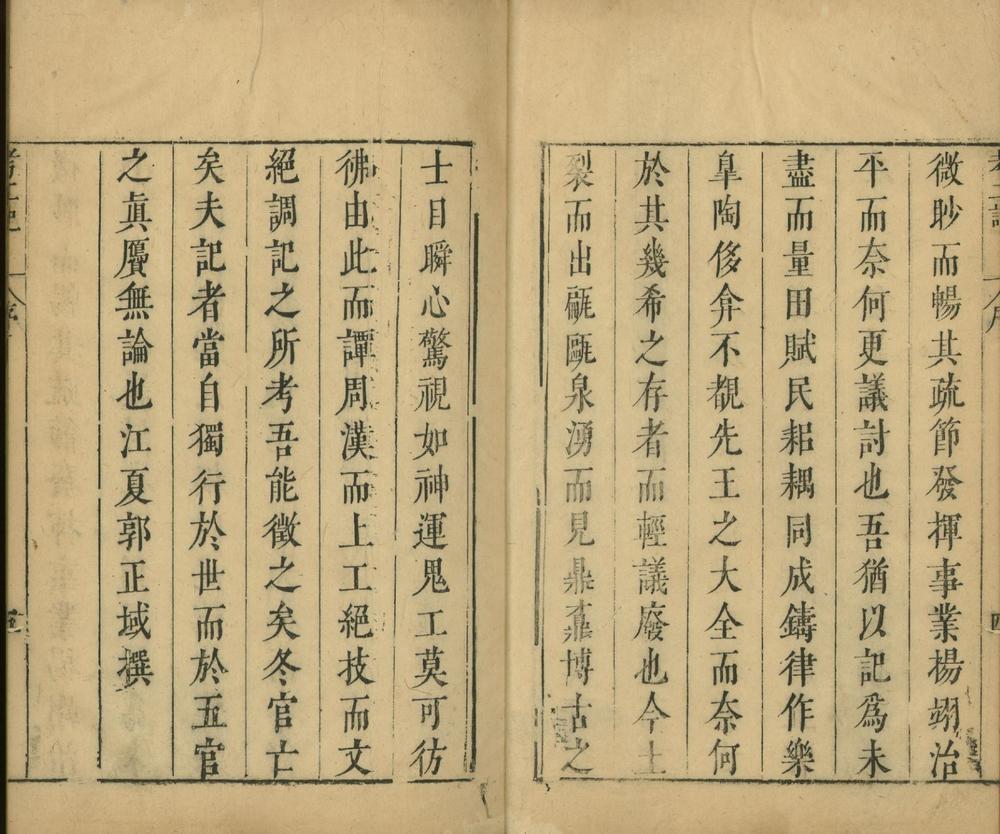 微眇而暢其疏節發揮事業楊翊治
平而奈何更議討也吾猶以記爲未
盡而量田賦民耜耦同成鑄律作樂
皐陶侈弇不覩先王之大全而奈何
於其幾希之存者而輕議廢也今土
裂而出甗甌泉湧而見鼎鼐博古之
士目瞬心驚視如神運鬼工莫可彷
彿由此而譚周漢而上工絕技而文
絕調記之所考吾能徵之矣冬官亡
矣夫記者當自獨行於世而於五官
之眞贋無論也江夏郭正域撰